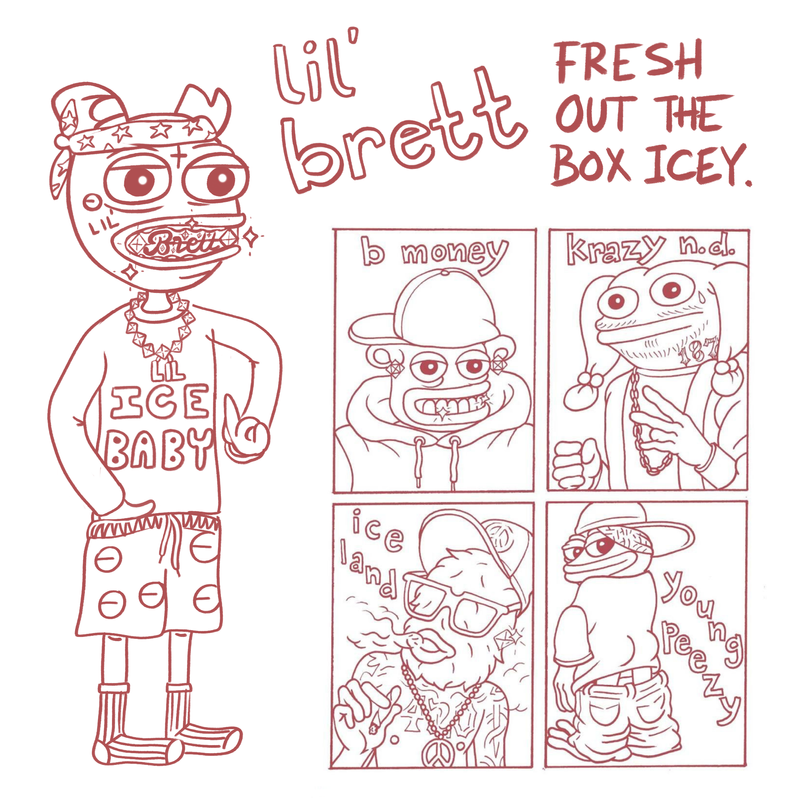 lil'
brett
FRESH
OUT THE
BOX ICEY.
LIL
Brett
LIL
ICE
BABY
b money
krazy n.d.
187
ice
land
young
peezy